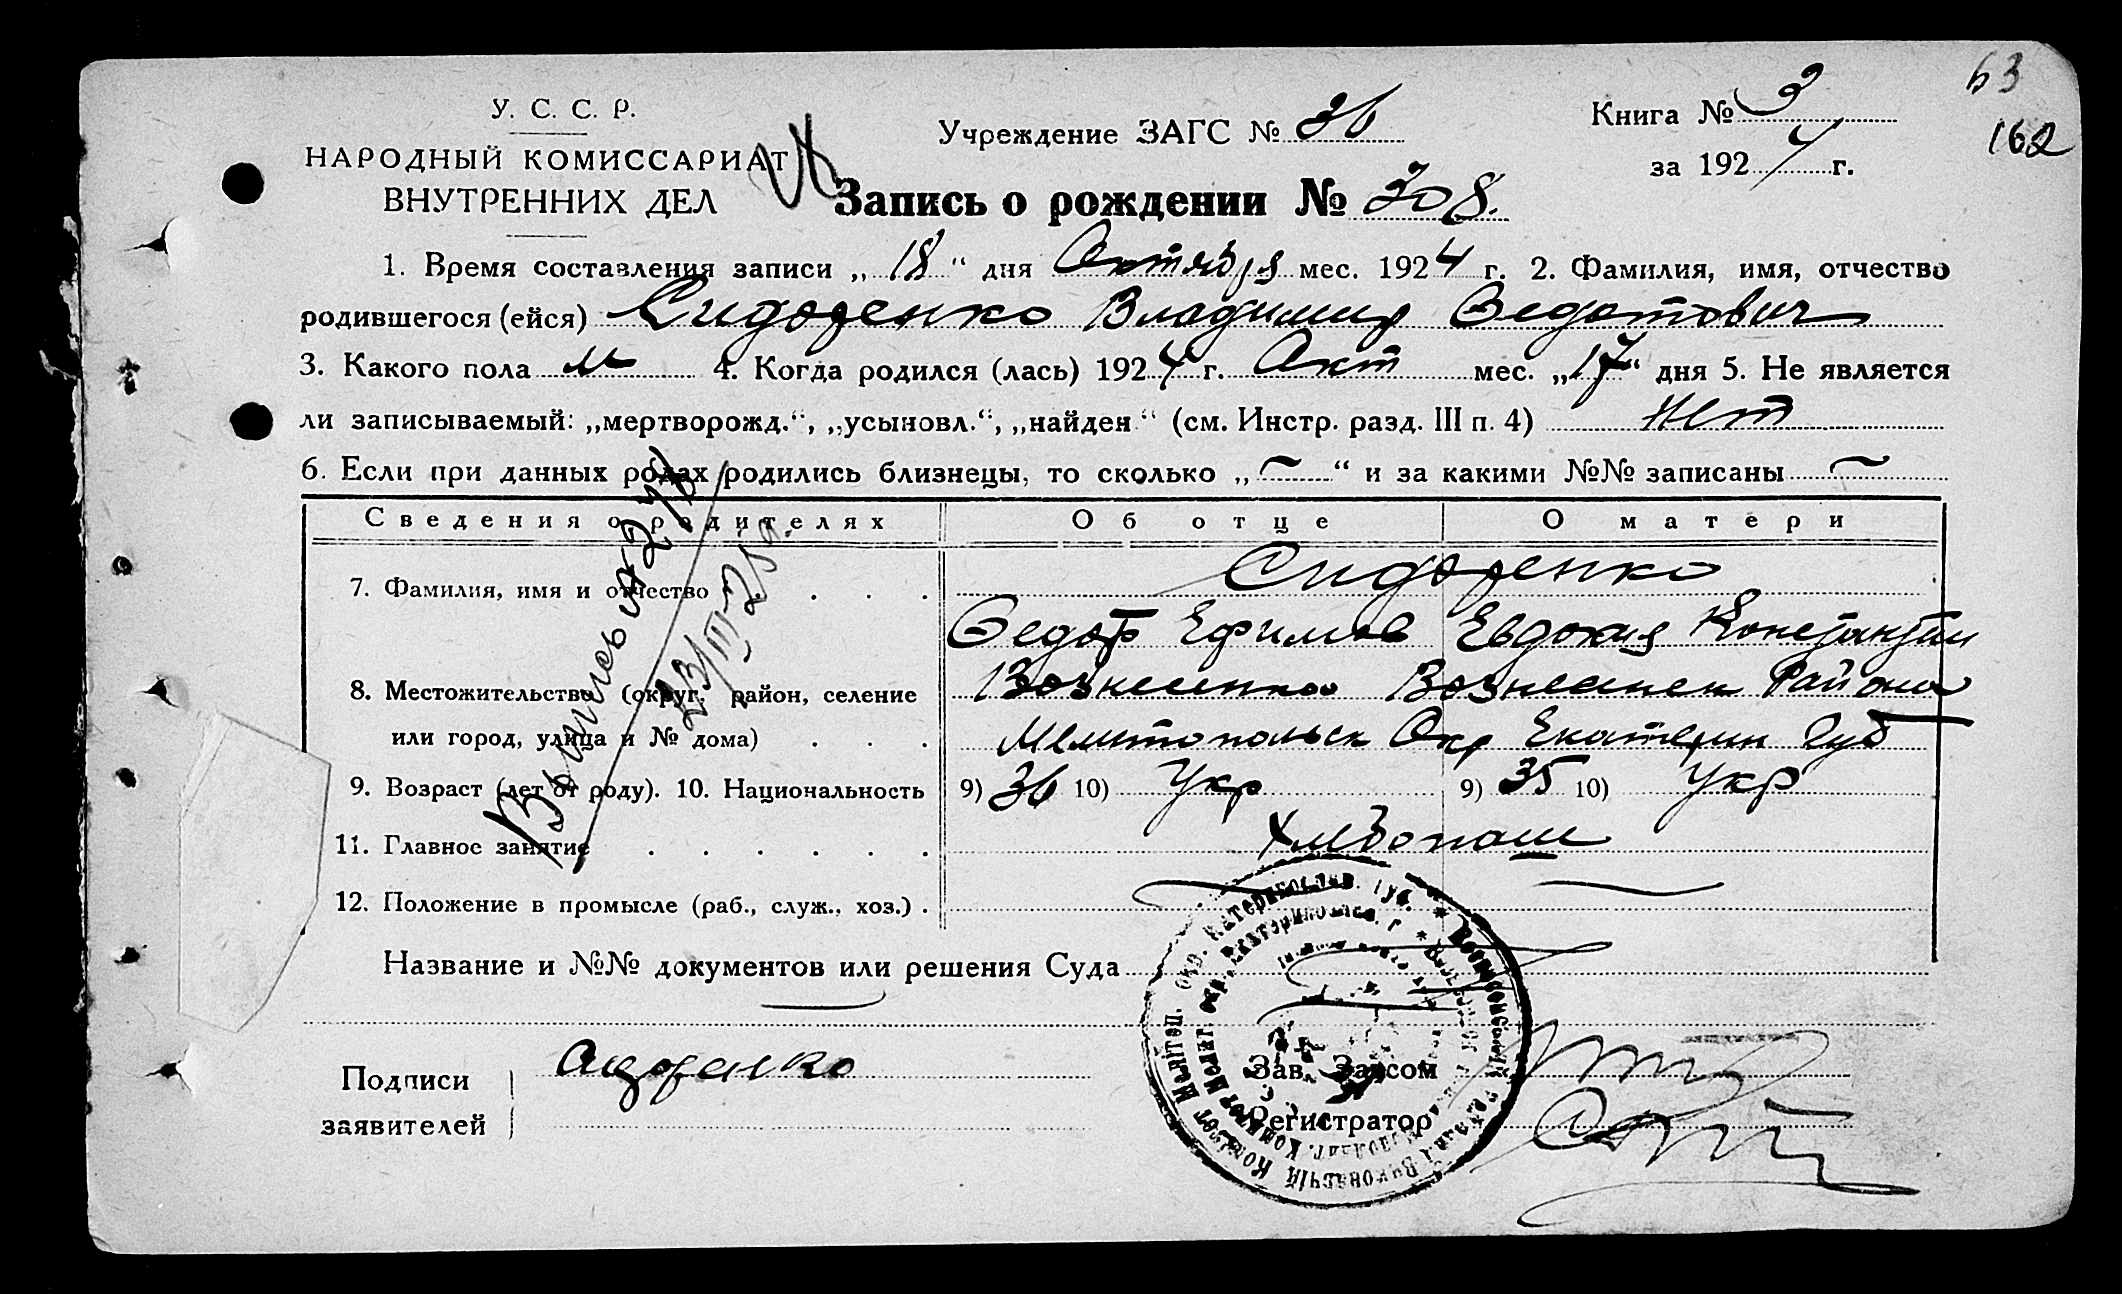 63
У. С. С. Р.
НАРОДНЫЙ КОМИССАРИАТ
ВНУТРЕННИХ ДЕЛ
Учреждение ЗАГС № 36
Книга № 3
за 1924 г.
162
Запись о рождении № 308.
1. Время составления записи „ 18 “ дня Октября мес. 1924 г. 2. Фамилия, имя, отчество
родившегося (ейся) Сидоренко Владимир Федотович
3. Какого пола м 4. Когда родился (лась) 1924 г. Окт мес. „17“ дня 5. Не является
ли записываемый: „мертворожд.“, „усыновл.“, „найден“ (см. Инстр. разд. III п. 4) Нет
6. Если при данных родах родились близнецы, то сколько „ — “ и за какими №№ записаны —
Сведения о родителях Об отце О матери
7. Фамилия, имя и отчество . . . Сидоренко
Федот Ефимов Евдокия Константин
8. Местожительство (округ, район, селение Вознесенка Вознесенск Района
или город, улица и № дома) . . . Мелитопольск Окр Екатерин Губ
9. Возраст (лет от роду). 10. Национальность 9) 36 10) Укр 9) 35 10) Укр
11. Главное занятие . . . . . . Хлебопаш
12. Положение в промысле (раб., служ., хоз.) .
Название и №№ документов или решения Суда
Подписи
заявителей
Сидоренко
Зав. Загсом
Регистратор
Выпись
23/III